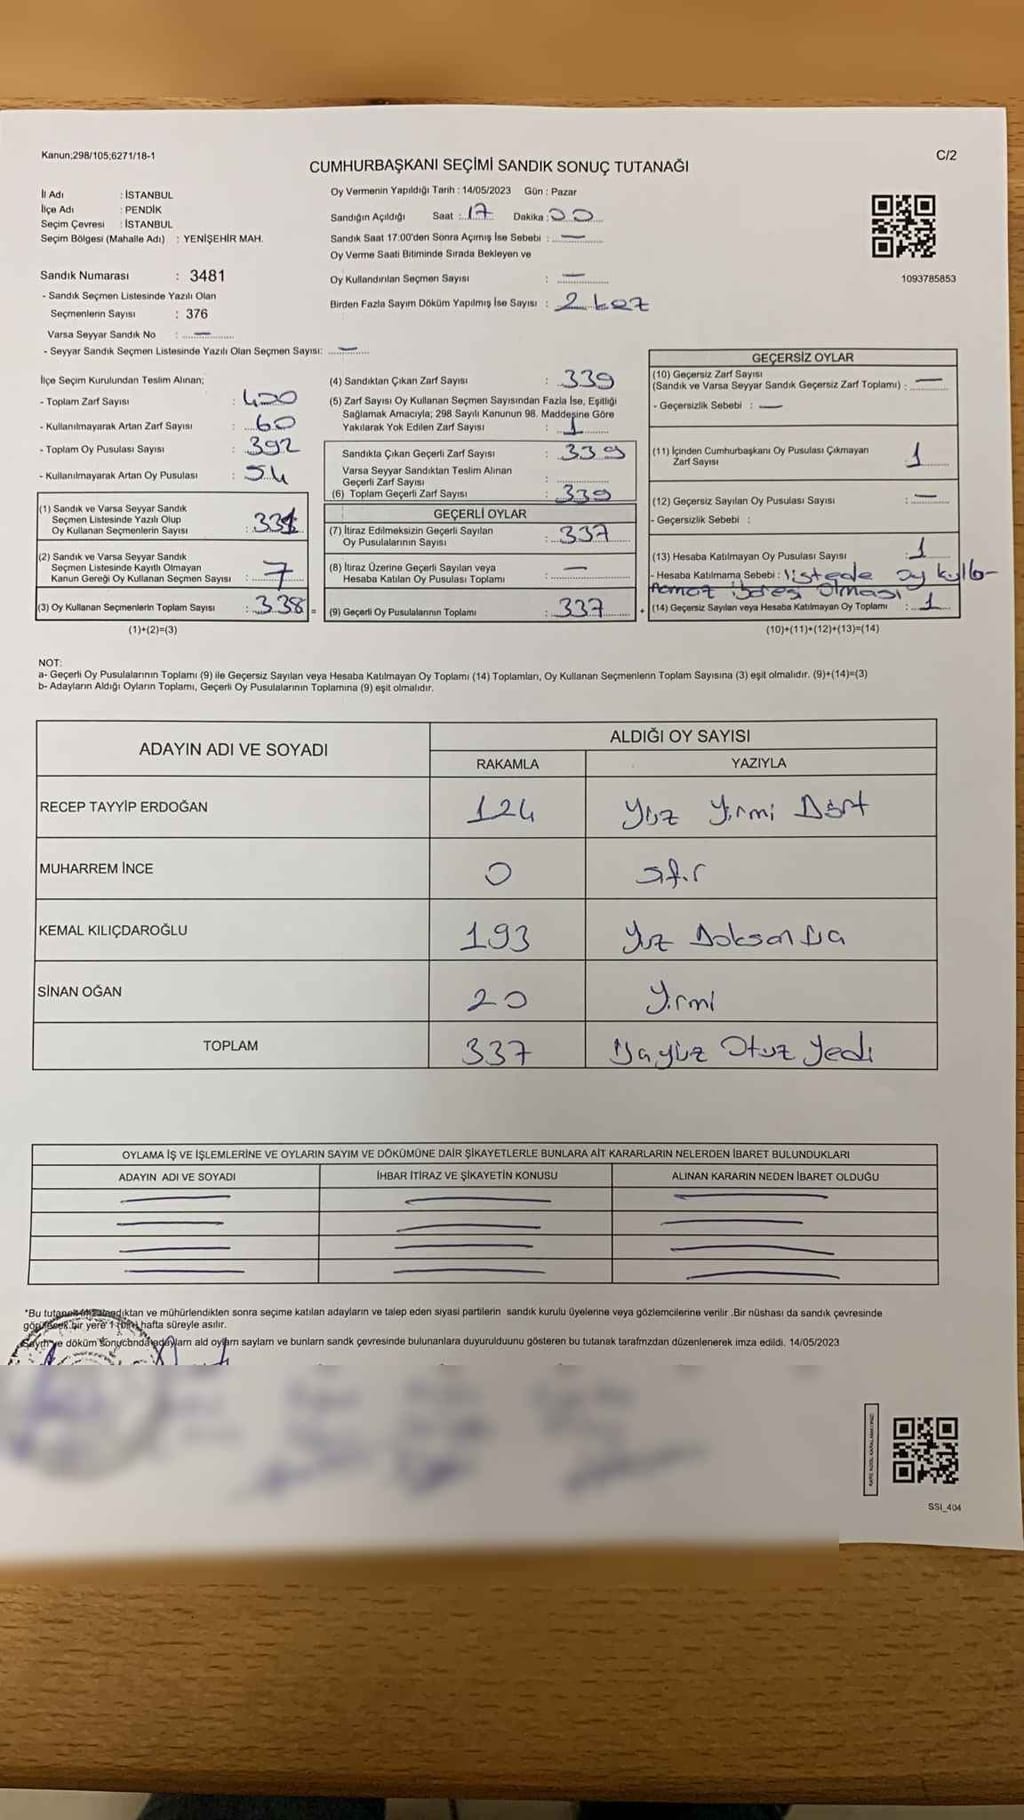 Kanun;298/105;6271/18-1
C/2
CUMHURBAŞKANI SEÇİMİ SANDIK SONUÇ TUTANAĞI
İl Adı : İSTANBUL
İlçe Adı : PENDİK
Seçim Çevresi : İSTANBUL
Seçim Bölgesi (Mahalle Adı) : YENİŞEHİR MAH.
Oy Vermenin Yapıldığı Tarih : 14/05/2023 Gün : Pazar
Sandığın Açıldığı Saat : 17 Dakika : 00
Sandık Saat 17:00'den Sonra Açımış İse Sebebi : —
Oy Verme Saati Bitiminde Sırada Bekleyen ve
Oy Kullandırılan Seçmen Sayısı : —
Birden Fazla Sayım Döküm Yapılmış İse Sayısı : 2 kez
1093785853
Sandık Numarası : 3481
- Sandık Seçmen Listesinde Yazılı Olan
Seçmenlerin Sayısı : 376
Varsa Seyyar Sandık No : —
- Seyyar Sandık Seçmen Listesinde Yazılı Olan Seçmen Sayısı: —
İlçe Seçim Kurulundan Teslim Alınan;
- Toplam Zarf Sayısı : 400
- Kullanılmayarak Artan Zarf Sayısı : 60
- Toplam Oy Pusulası Sayısı : 392
- Kullanılmayarak Artan Oy Pusulası : 54
(1) Sandık ve Varsa Seyyar Sandık
Seçmen Listesinde Yazılı Olup
Oy Kullanan Seçmenlerin Sayısı : 331
(2) Sandık ve Varsa Seyyar Sandık
Seçmen Listesinde Kayıtlı Olmayan
Kanun Gereği Oy Kullanan Seçmen Sayısı : 7
(3) Oy Kullanan Seçmenlerin Toplam Sayısı : 338 =
(1)+(2)=(3)
(4) Sandıktan Çıkan Zarf Sayısı : 339
(5) Zarf Sayısı Oy Kullanan Seçmen Sayısından Fazla İse, Eşitliği
Sağlamak Amacıyla; 298 Sayılı Kanunun 98. Maddesine Göre
Yakılarak Yok Edilen Zarf Sayısı : 1
Sandıkta Çıkan Geçerli Zarf Sayısı : 339
Varsa Seyyar Sandıktan Teslim Alınan
Geçerli Zarf Sayısı :
(6) Toplam Geçerli Zarf Sayısı : 339
GEÇERLİ OYLAR
(7) İtiraz Edilmeksizin Geçerli Sayılan
Oy Pusulalarının Sayısı : 337
(8) İtiraz Üzerine Geçerli Sayılan veya
Hesaba Katılan Oy Pusulası Toplamı : —
(9) Geçerli Oy Pusulalarının Toplamı : 337 +
GEÇERSİZ OYLAR
(10) Geçersiz Zarf Sayısı
(Sandık ve Varsa Seyyar Sandık Geçersiz Zarf Toplamı) : —
- Geçersizlik Sebebi : —
(11) İçinden Cumhurbaşkanı Oy Pusulası Çıkmayan
Zarf Sayısı : 1
(12) Geçersiz Sayılan Oy Pusulası Sayısı : —
- Geçersizlik Sebebi :
(13) Hesaba Katılmayan Oy Pusulası Sayısı : 1
- Hesaba Katılmama Sebebi : listede oy kulla-
namaz ibaresi olması
(14) Geçersiz Sayılan veya Hesaba Katılmayan Oy Toplamı : 1
(10)+(11)+(12)+(13)=(14)
NOT:
a- Geçerli Oy Pusulalarının Toplamı (9) ile Geçersiz Sayılan veya Hesaba Katılmayan Oy Toplamı (14) Toplamları, Oy Kullanan Seçmenlerin Toplam Sayısına (3) eşit olmalıdır. (9)+(14)=(3)
b- Adayların Aldığı Oyların Toplamı, Geçerli Oy Pusulalarının Toplamına (9) eşit olmalıdır.
ADAYIN ADI VE SOYADI
ALDIĞI OY SAYISI
RAKAMLA YAZIYLA
RECEP TAYYİP ERDOĞAN 124 Yüz Yirmi Dört
MUHARREM İNCE 0 sıfır
KEMAL KILIÇDAROĞLU 193 Yüz Doksan
SİNAN OĞAN 20 Yirmi
TOPLAM 337 Otuz Yedi
OYLAMA İŞ VE İŞLEMLERİNE VE OYLARIN SAYIM VE DÖKÜMÜNE DAİR ŞİKAYETLERLE BUNLARA AİT KARARLARIN NELERDEN İBARET BULUNDUKLARI
ADAYIN ADI VE SOYADI İHBAR İTİRAZ VE ŞİKAYETİN KONUSU ALINAN KARARIN NEDEN İBARET OLDUĞU
*Bu tutanak ve mühürlendikten sonra seçime katılan adayların ve talep eden siyasi partilerin sandık kurulu üyelerine veya gözlemcilerine verilir .Bir nüshası da sandık çevresinde
bir yere 1 (bir) hafta süreyle asılır.
ve döküm sonucunda ald oylarn saylarn ve bunlarn sandk çevresinde bulunanlara duyurulduunu gösteren bu tutanak tarafmzdan düzenlenerek imza edildi. 14/05/2023
SSI_404